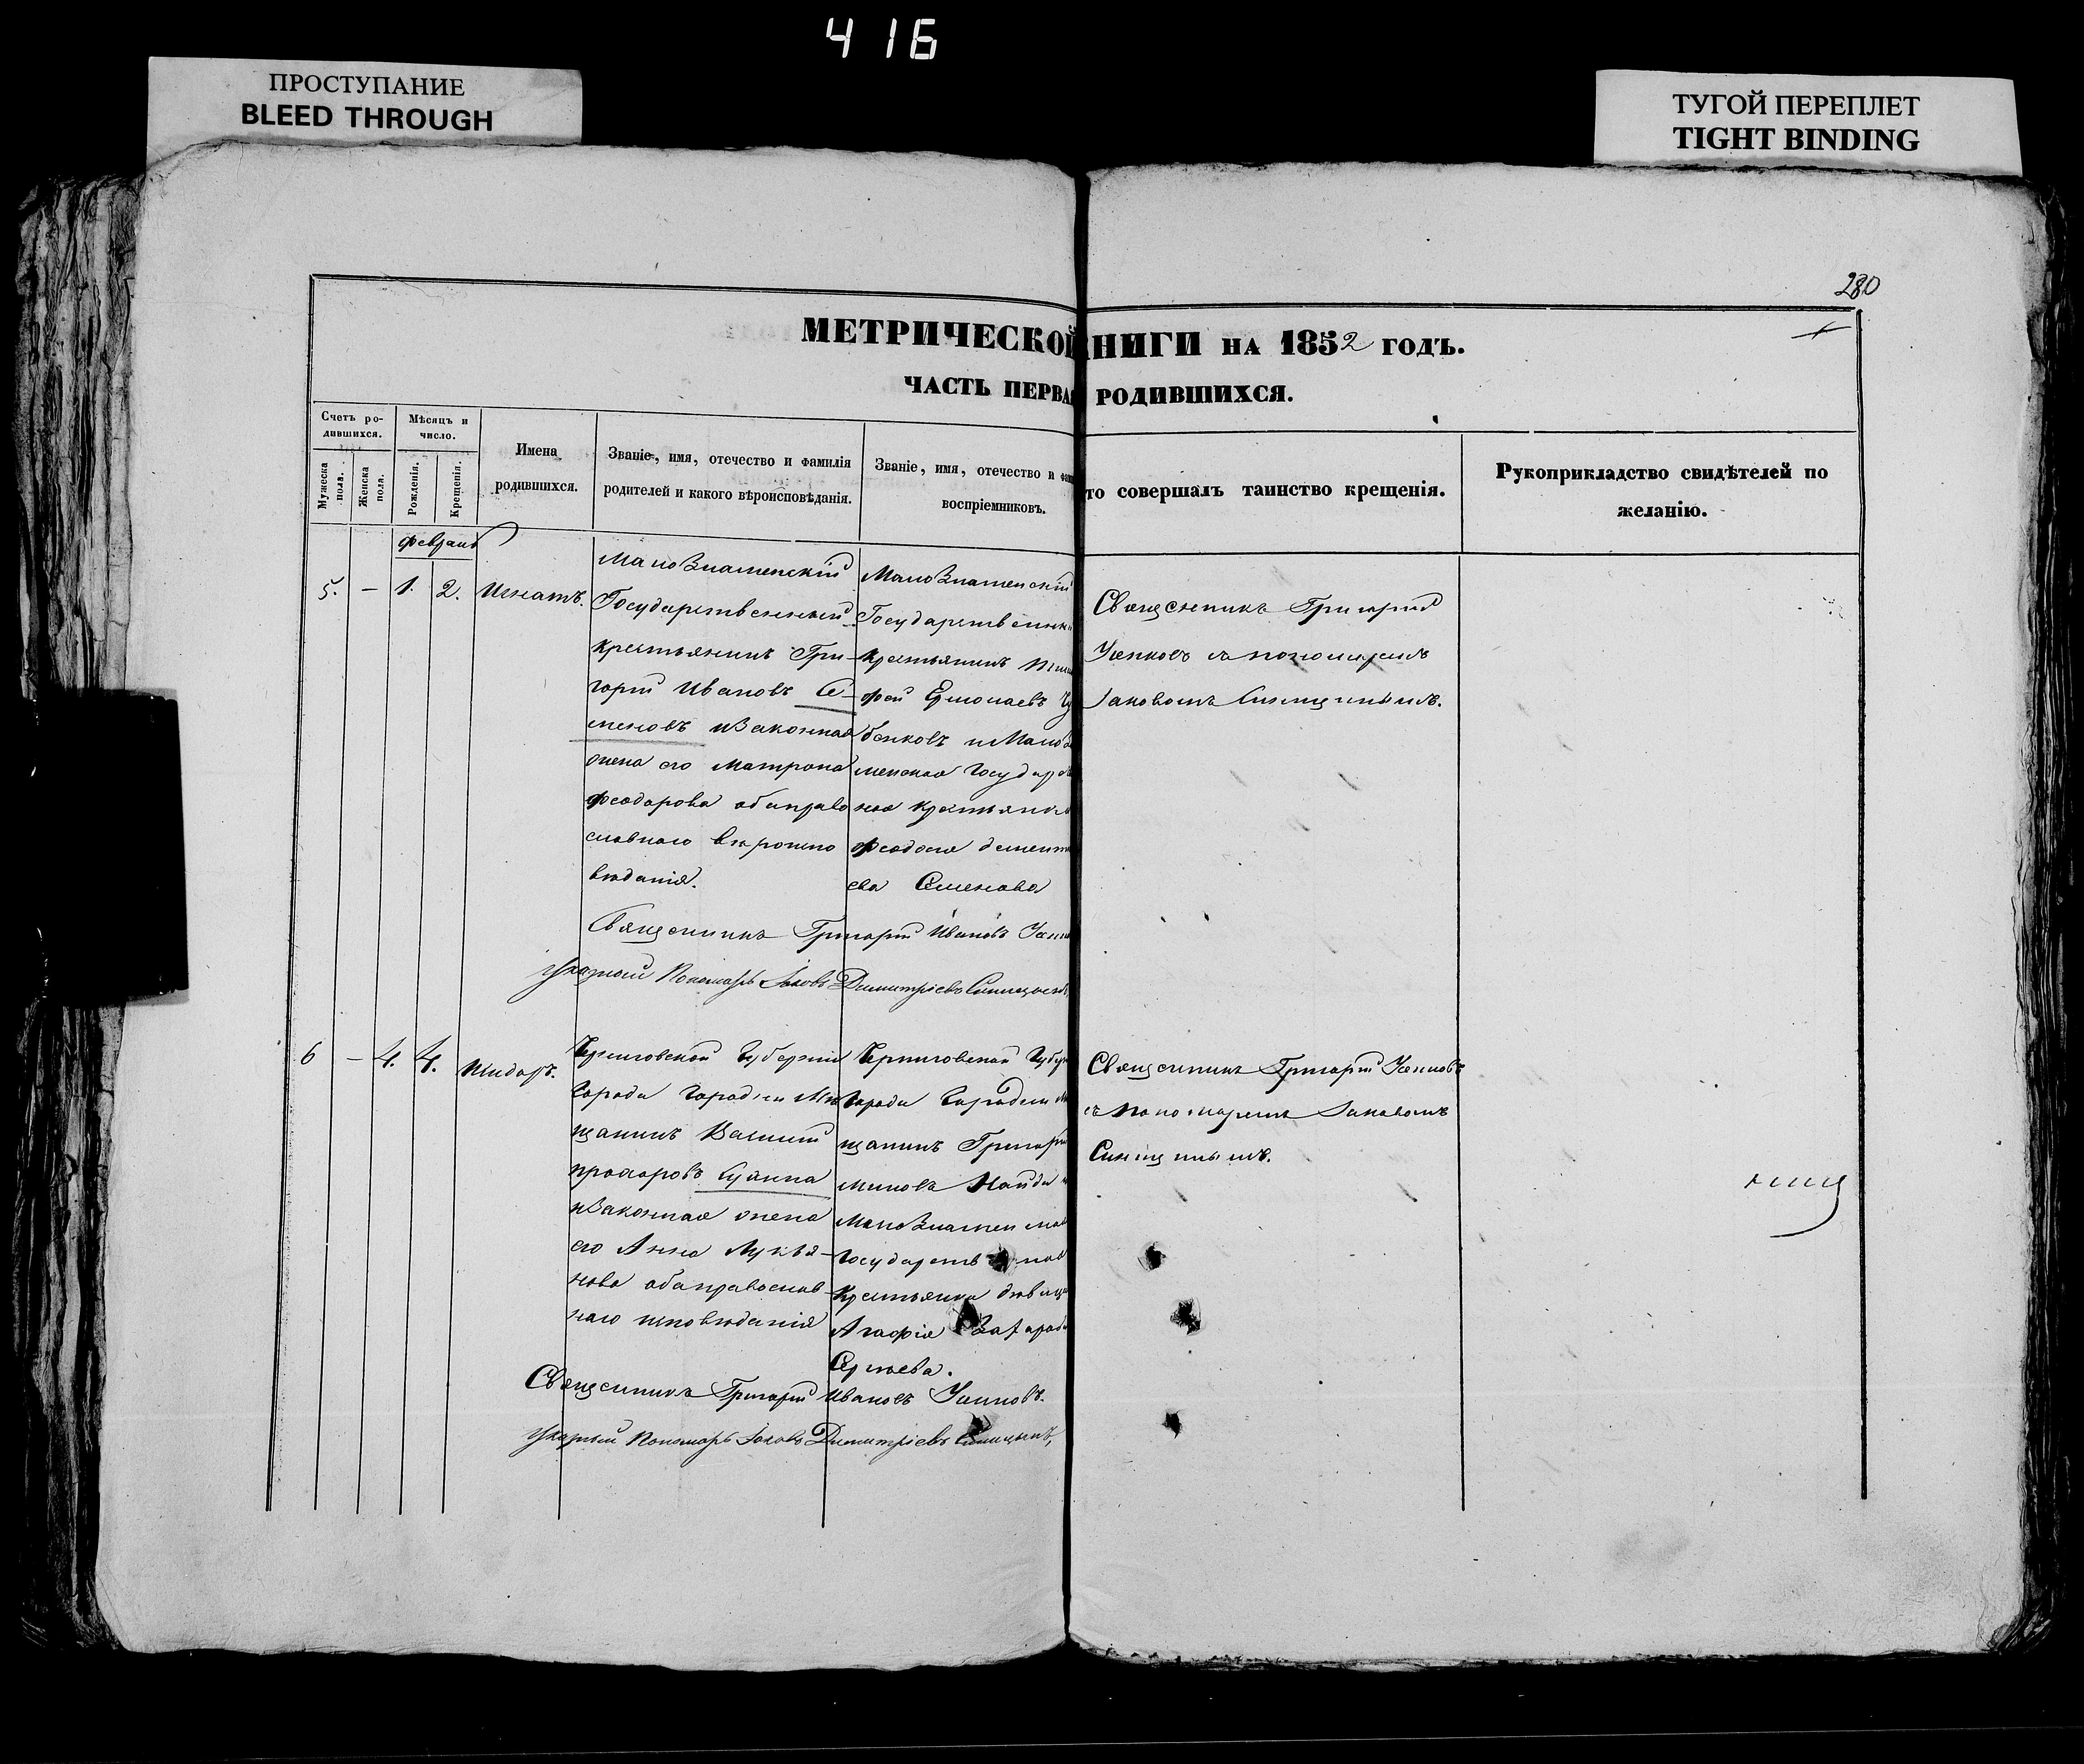 416
ПРОСТУПАНИЕ
BLEED THROUGH
ТУГОЙ ПЕРЕПЛЕТ
TIGHT BINDING
280
МЕТРИЧЕСКОЙ НИГИ НА 1852 ГОДЪ.
ЧАСТЬ ПЕРВАЯ РОДИВШИХСЯ.
Счетъ ро-
дившихся.
Мужеска пола.
Женска пола.
Мѣсяцъ и
число.
Рожденія.
Крещенія.
Имена
родившихся.
Званіе, имя, отечество и фамилія
родителей и какого вѣроисповѣданія.
Званіе, имя, отечество и
воспріемниковъ.
то совершалъ таинство крещенія.
Рукоприкладство свидѣтелей по
желанію.
5. – 1. 2. Игнатъ.
МалоЗнаменскій
Государственный
крестьянинъ Гри-
горій Ивановъ Се-
меновъ иЗаконная
жена его Матрона
Феодорова обаправо
славнаго вѣроиспо
вѣданія.
МалоЗнаменскій
Государственны
крестьянинъ
фей Ермолаевъ
бенковъ
менская Государ
ная крестьянка
Феодосія Демент
ева Семенова
Священникъ Григорій
Усенковъ съ пономаремъ
Іаковомъ Синицынымъ.
Священникъ Григорій Ивановъ
указный Пономарь Іаковъ Димитріевъ Синицынъ
6 – 4. 4. Исидоръ.
Черниговской Губерніи
Города Городни Мѣ
щанинъ Василій
Прохоровъ
иЗаконная жена
его Анна Лукья-
нова обаправослав-
наго исповѣданія
Черниговской Губер
Города Городни
щанинъ Григорій
МалоЗнаменская
Государственная
крестьянка дѣвица
Агафія
Сергѣева.
Священникъ Григорій Усенковъ
съ пономаремъ Іаковомъ
Синицынымъ.
Священникъ Григорій Ивановъ Усенковъ.
указный Пономарь Іаковъ Димитріевъ Синицынъ,